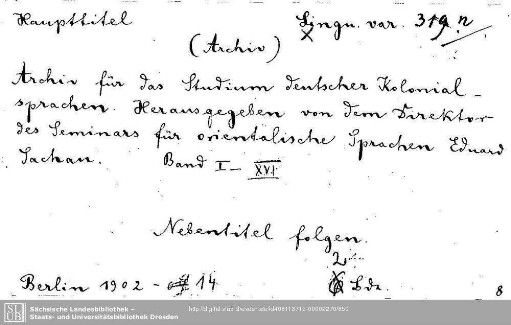 Haupttitel
Lingu. var. 319 n
(Archiv)
Archiv für das Studium deutscher Kolonial-
sprachen. Herausgegeben von dem Direktor
des Seminars für orientalische Sprachen Eduard
Sachau. Band I – XVI
Nebentitel folgen.
Berlin 1902 - 14
Bde.
8
Sächsische Landesbibliothek –
Staats- und Universitätsbibliothek Dresden